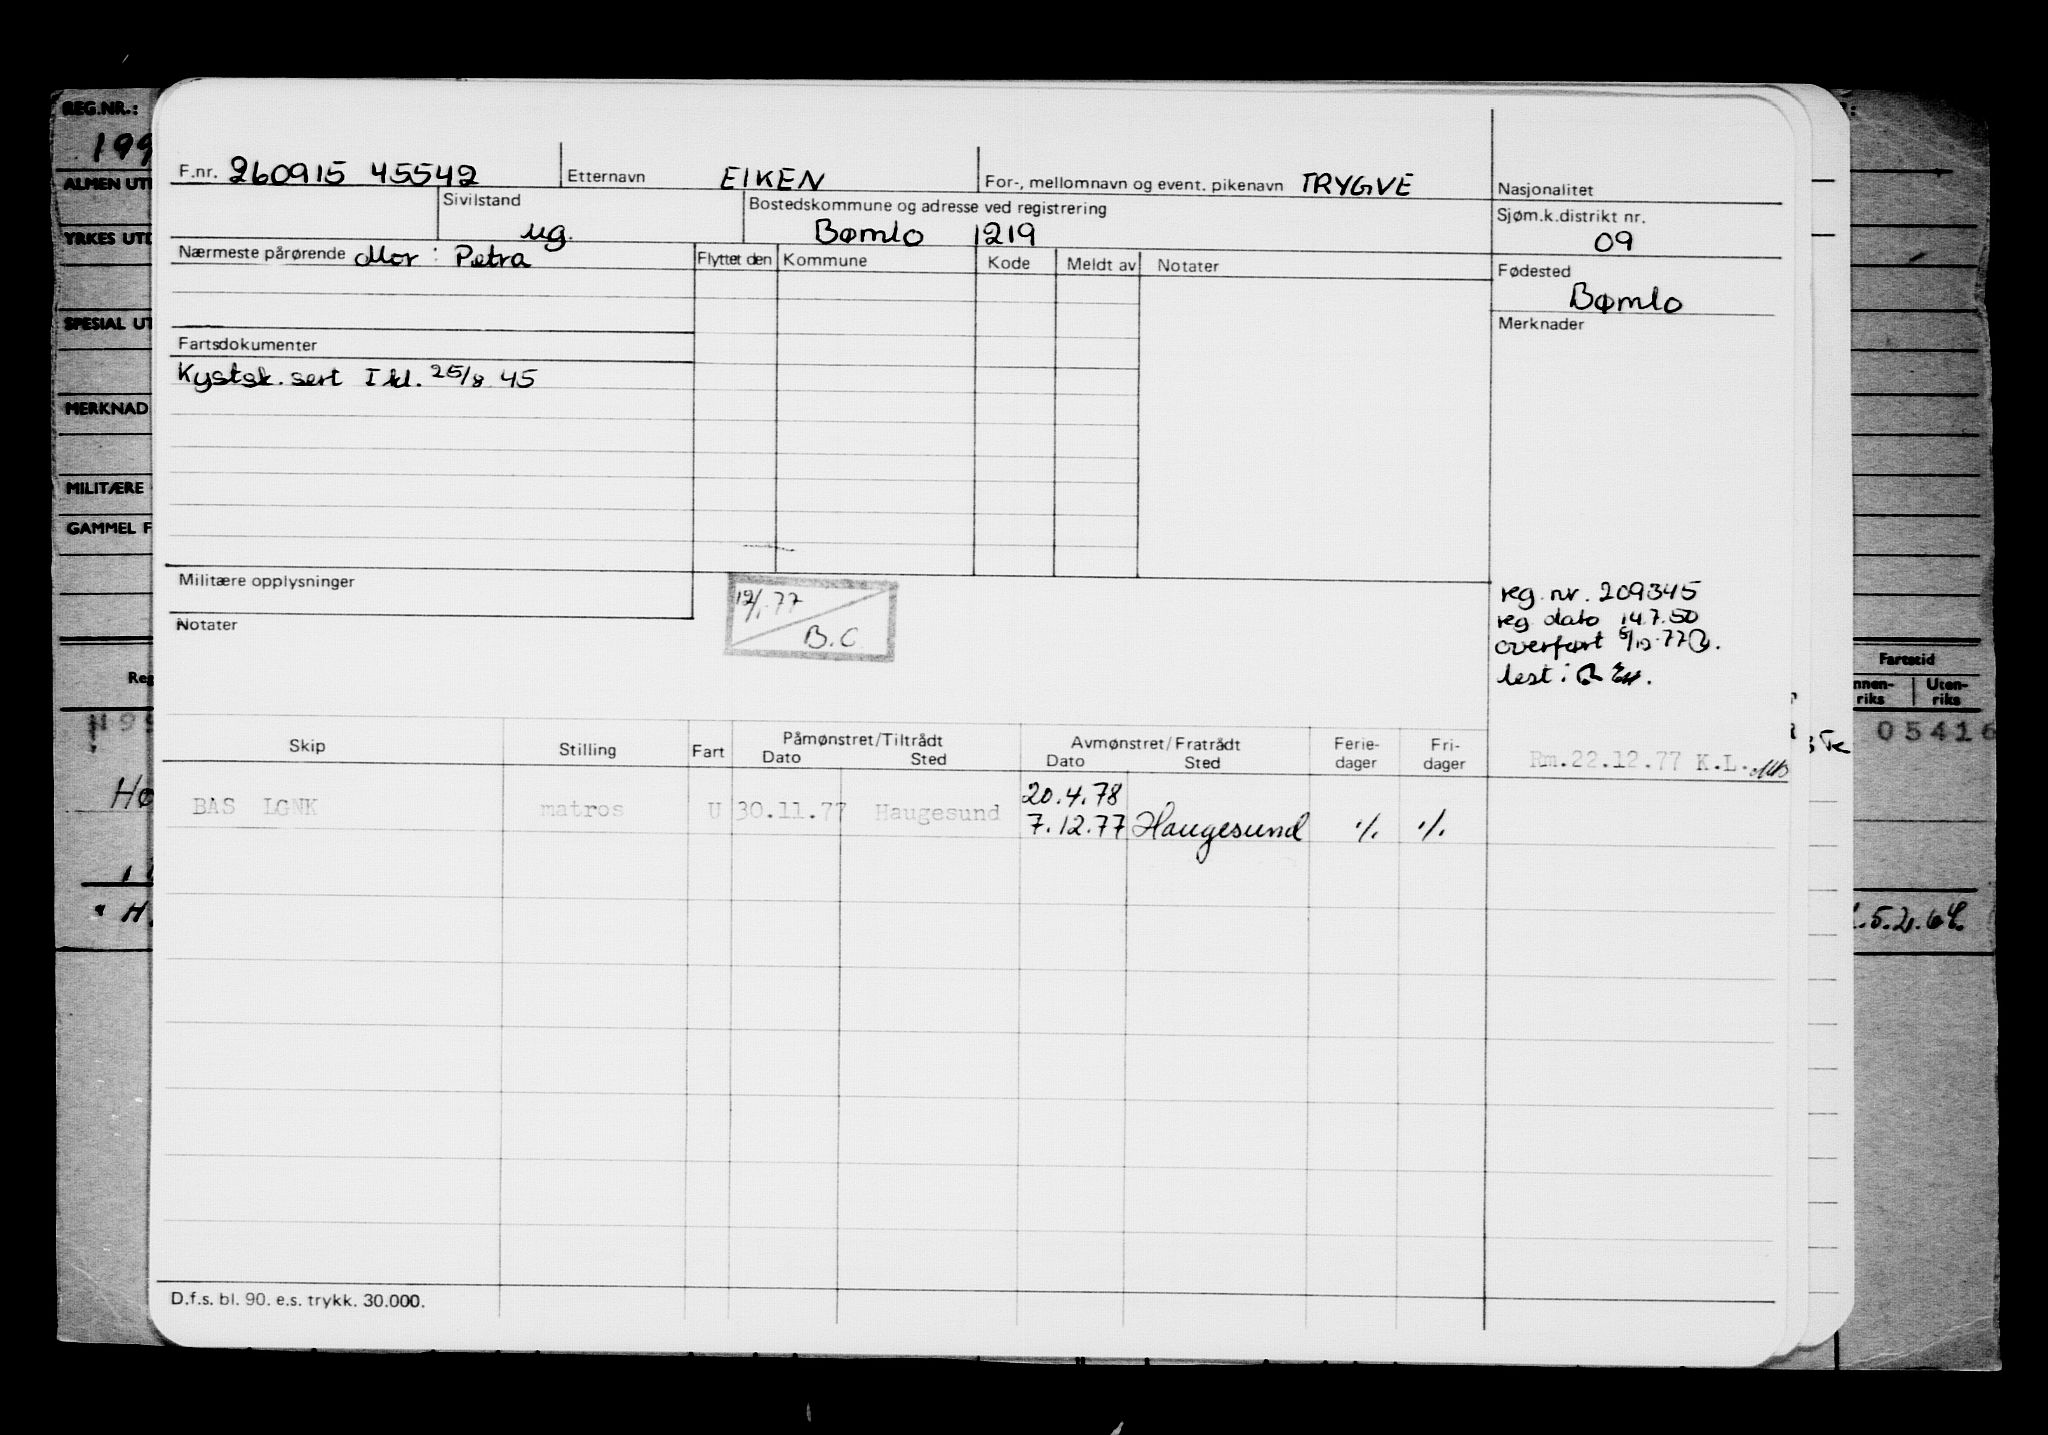 REG.NR.:
199
ALMEN UT
YRKES UTD
SPESIAL UT
MERKNAD
MILITÆRE
GAMMEL F
Reg
F.nr. 260915 45542 Etternavn EIKEN For-, mellomnavn og event. pikenavn TRYGVE Nasjonalitet
Sivilstand ug. Bostedskommune og adresse ved registrering Bømlo 1219 Sjøm.k.distrikt nr. 09
Nærmeste pårørende Mor: Petra Flyttet den Kommune Kode Meldt av Notater Fødested Bømlo
Merknader
Fartsdokumenter
Kystsk. sert I kl. 25/8 45
Militære opplysninger
Notater
12/1-77
B.C
reg. nr. 209345
reg dato 14.7.50
overført 5/10-77
lest:
Skip Stilling Fart Påmønstret/Tiltrådt Dato Sted Avmønstret/Fratrådt Dato Sted Ferie-dager Fri-dager
Rm.22.12.77 K.L.
20.4.78
BAS LGNK matros U 30.11.77 Haugesund 7.12.77 Haugesund ./. ./.
D.f.s. bl. 90. e.s. trykk. 30.000.
Fartstid
nnen-riks Uten-riks
05416
5.2.64.